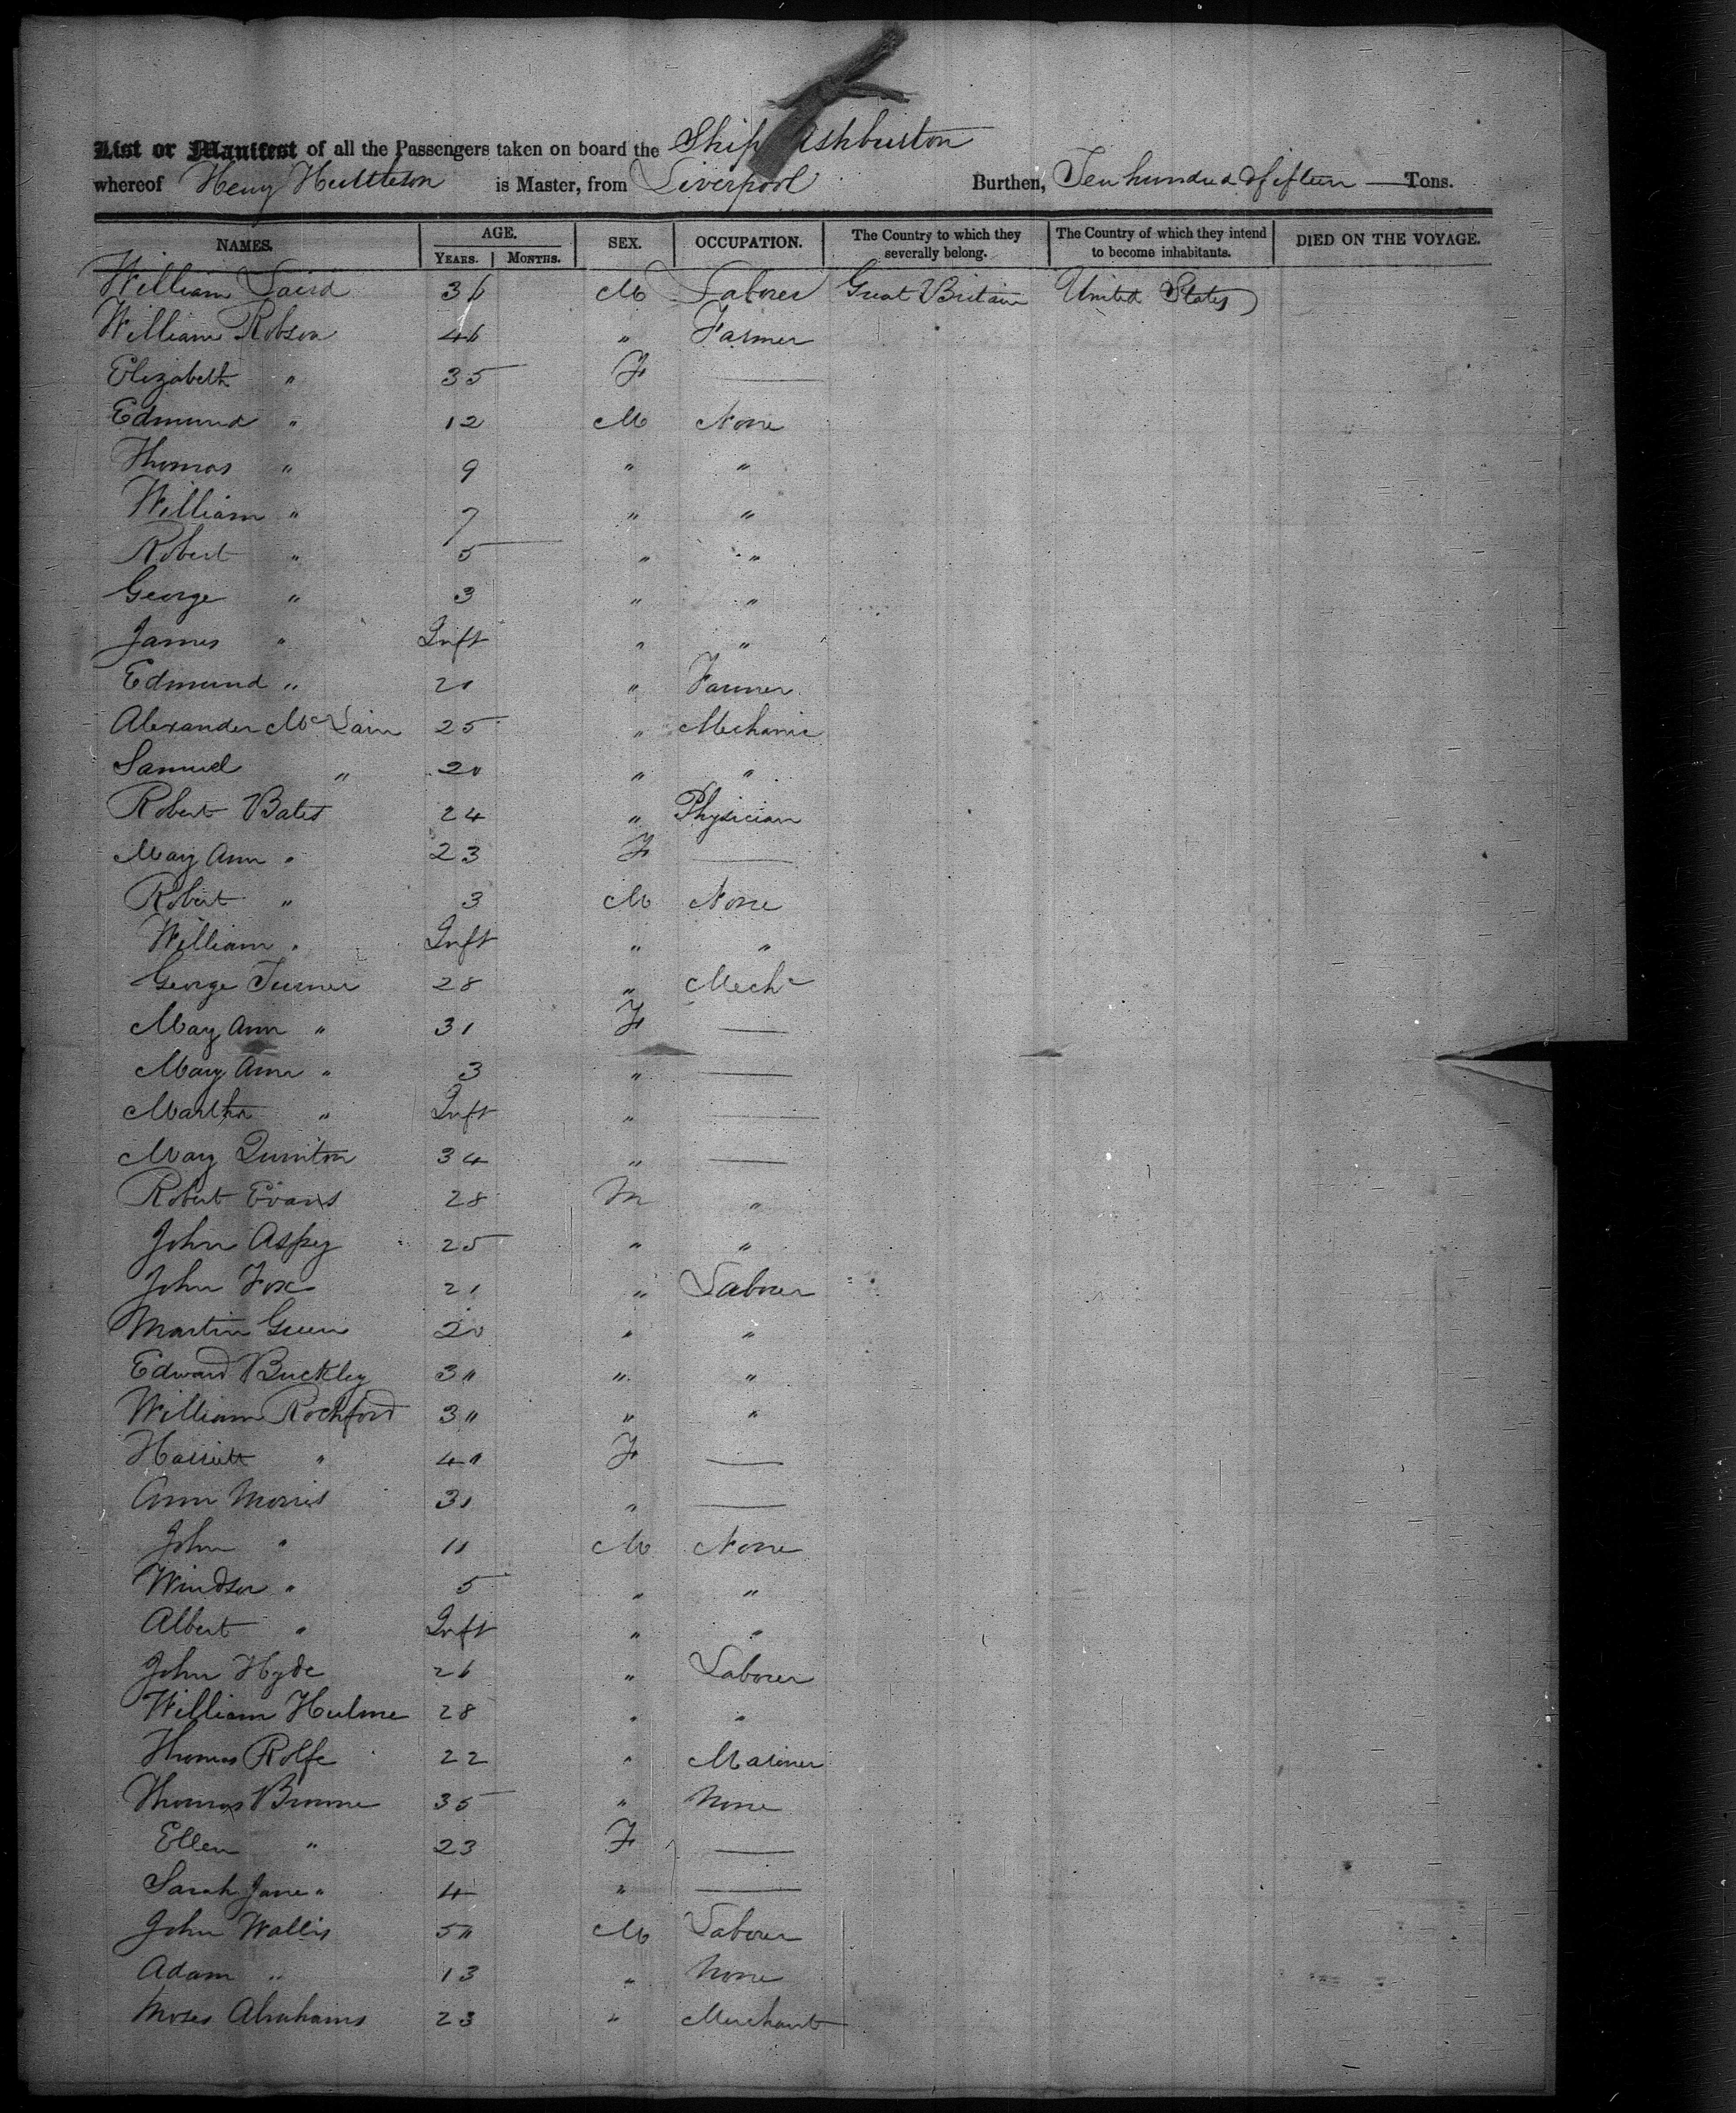 List or Manifest of all the Passengers taken on board the Ship Ashburton
whereof Henry Huttleson is Master, from Liverpool Burthen, Ten hundred & fifteen Tons.
NAMES. AGE. SEX. OCCUPATION. The Country to which they severally belong. The Country of which they intend to become inhabitants. DIED ON THE VOYAGE.
YEARS. MONTHS.
William Laird 36 M Laborer Great Britain United States
William Robson 46 " Farmer
Elizabeth " 35 F —
Edmund " 12 M None
Thomas " 9 " "
William " 7 " "
Robert " 5 " "
George " 3 " "
James " Inft " "
Edmund " 21 " Farmer
Alexander McLain 25 " Mechanic
Samuel " 20 " "
Robert Bates 24 " Physician
Mary Ann " 23 F —
Robert " 3 M None
William " Inft " "
George Turner 28 " Mechc
Mary Ann " 31 F —
Mary Ann " 3 " —
Martha " Inft " —
Mary Quinton 34 " —
Robert Evans 28 M "
John Aspey 25 " "
John Fox 21 " Laborer
Martin Green 20 " "
Edward Buckley 30 " "
William Rochford 30 " "
Harriett " 40 F —
Ann Morris 31 " —
John " 11 M None
Windsor " 5 " "
Albert " Inft " "
John Hyde 26 " Laborer
William Hulme 28 " "
Thomas Rolfe 22 " Mariner
Thomas Browne 35 " None
Ellen " 23 F —
Sarah Jane " 4 " —
John Wallis 50 M Laborer
Adam " 13 " None
Moses Abrahams 23 " Merchant